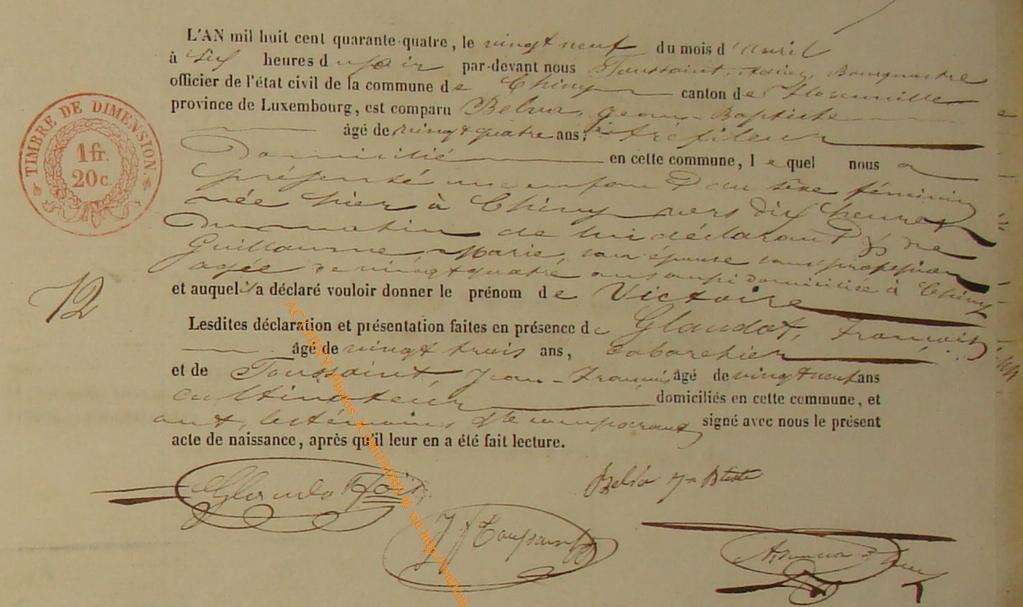 L'AN mil huit cent quarante-quatre, le vingt neuf du mois d'avril
à six heures du soir par-devant nous Toussaint, Bourgmestre
officier de l'état civil de la commune de Chiny canton de Florenville
province de Luxembourg, est comparu Jean-Baptiste
âgé de vingt quatre ans, Trefileur
Domicilié en cette commune, lequel nous a
présenté un enfant du sexe féminin
née hier à Chiny vers dix heures
du matin de lui déclarant & de
Guillaume Marie, son épouse sans profession
agée de vingt quatre ans aussi domiciliée à Chiny
et auquel il a déclaré vouloir donner le prénom de Victoire
Lesdites déclaration et présentation faites en présence de Glaudot, François
âgé de vingt trois ans, Cabaretier
et de Toussaint, Jean-François âgé de vingt neuf ans
cultivateur domiciliés en cette commune, et
ont, les témoins & le comparant signé avec nous le présent
acte de naissance, après qu'il leur en a été fait lecture.
TIMBRE DE DIMENSION
1 fr.
20 c.
12
Glaudot
J Toussaint